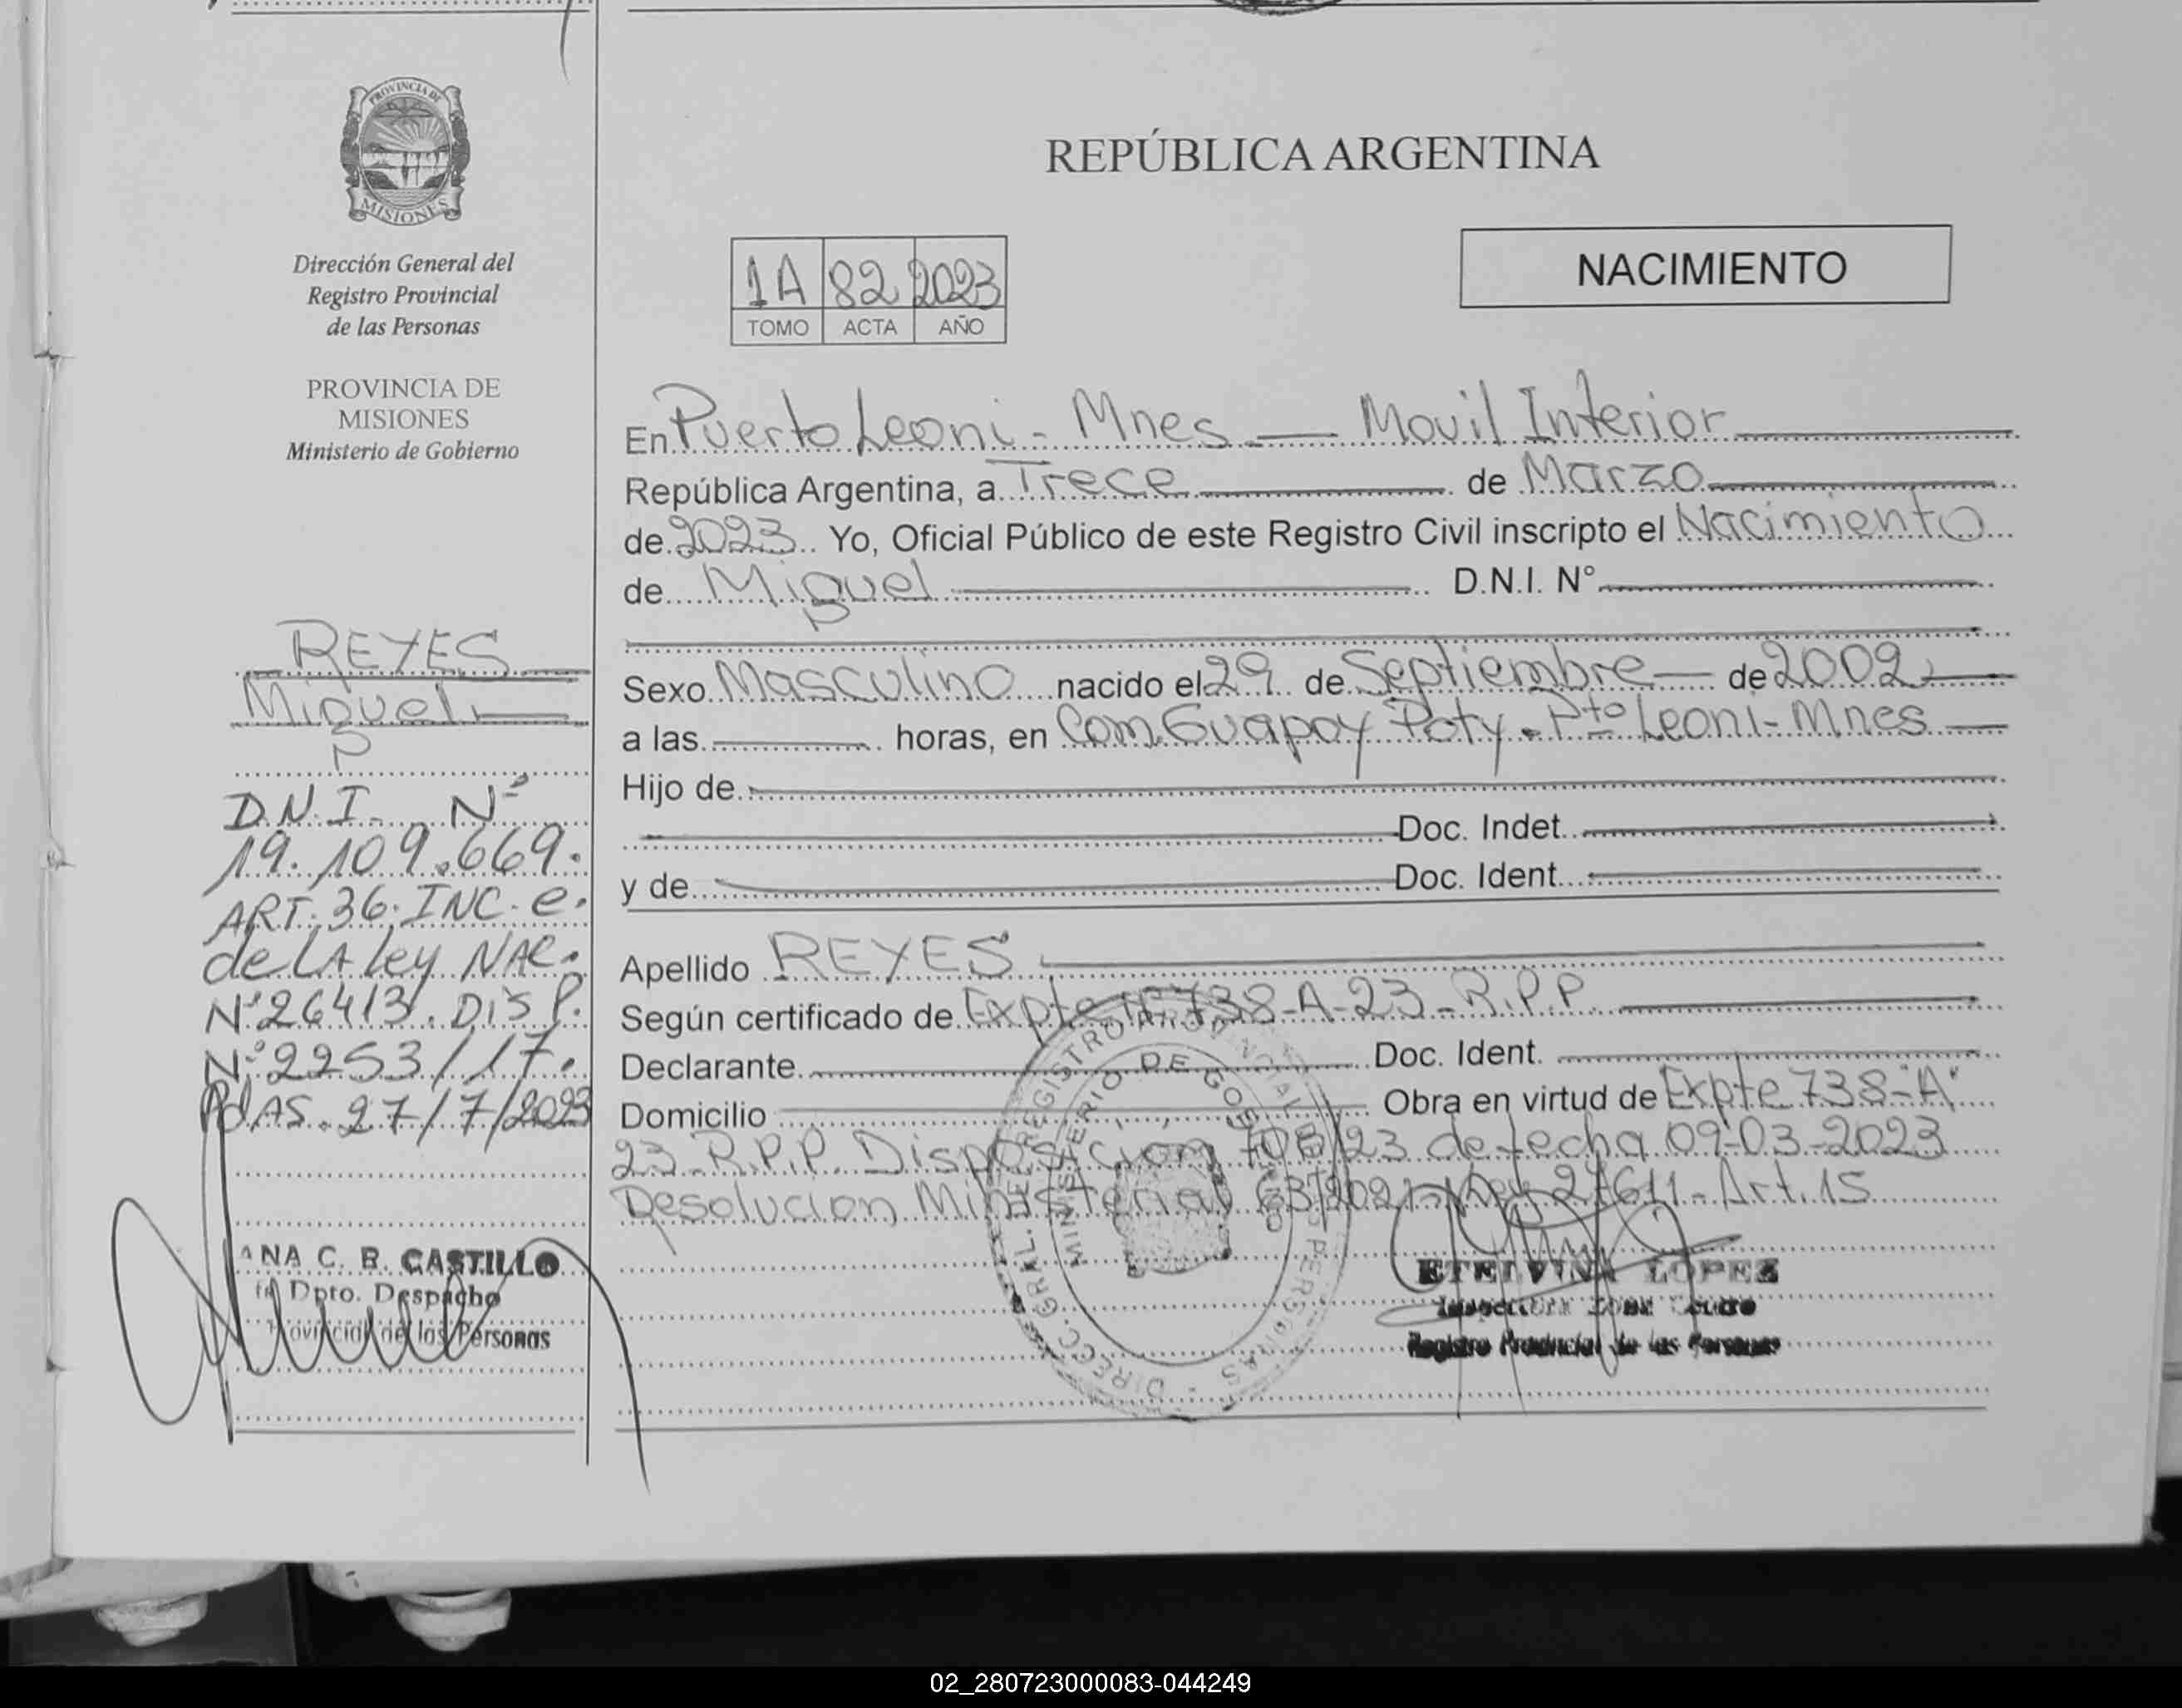 PROVINCIA DE
MISIONES
Dirección General del
Registro Provincial
de las Personas
PROVINCIA DE
MISIONES
Ministerio de Gobierno
REYES
Miguel
D.N.I. Nº
19.109.669.
ART. 36. INC. e.
de LA Ley NAC.
Nº 26413. DISP.
Nº 2253/17.
PdAS. 27/7/2023
ANA C. B. CASTILLO
Dpto. Despacho
Provincial de las Personas
REPÚBLICA ARGENTINA
NACIMIENTO
1A 82 2023
TOMO ACTA AÑO
En Puerto Leoni - Mnes — Movil Interior
República Argentina, a Trece de Marzo
de 2023 Yo, Oficial Público de este Registro Civil inscripto el Nacimiento
de Miguel D.N.I. N°
Sexo Masculino nacido el 29 de Septiembre de 2002
a las horas, en Com. Guapoy Poty. Pto Leoni - Mnes
Hijo de
Doc. Indet.
y de Doc. Ident.
Apellido REYES
Según certificado de Expte Nº 738-A-23-R.P.P.
Declarante Doc. Ident.
Domicilio Obra en virtud de Expte 738-"A"
23-R.P.P. Disposicion 708/23 de fecha 09-03-2023
Resolucion Ministerial 63/2021-Ley 27611-Art. 15
DIRECC. GRAL. DE REGISTRO PROVINCIAL DE LAS PERSONAS
MINISTERIO DE GOBIERNO
ETELVINA LOPEZ
Registro Provincial de las Personas
02_280723000083-044249